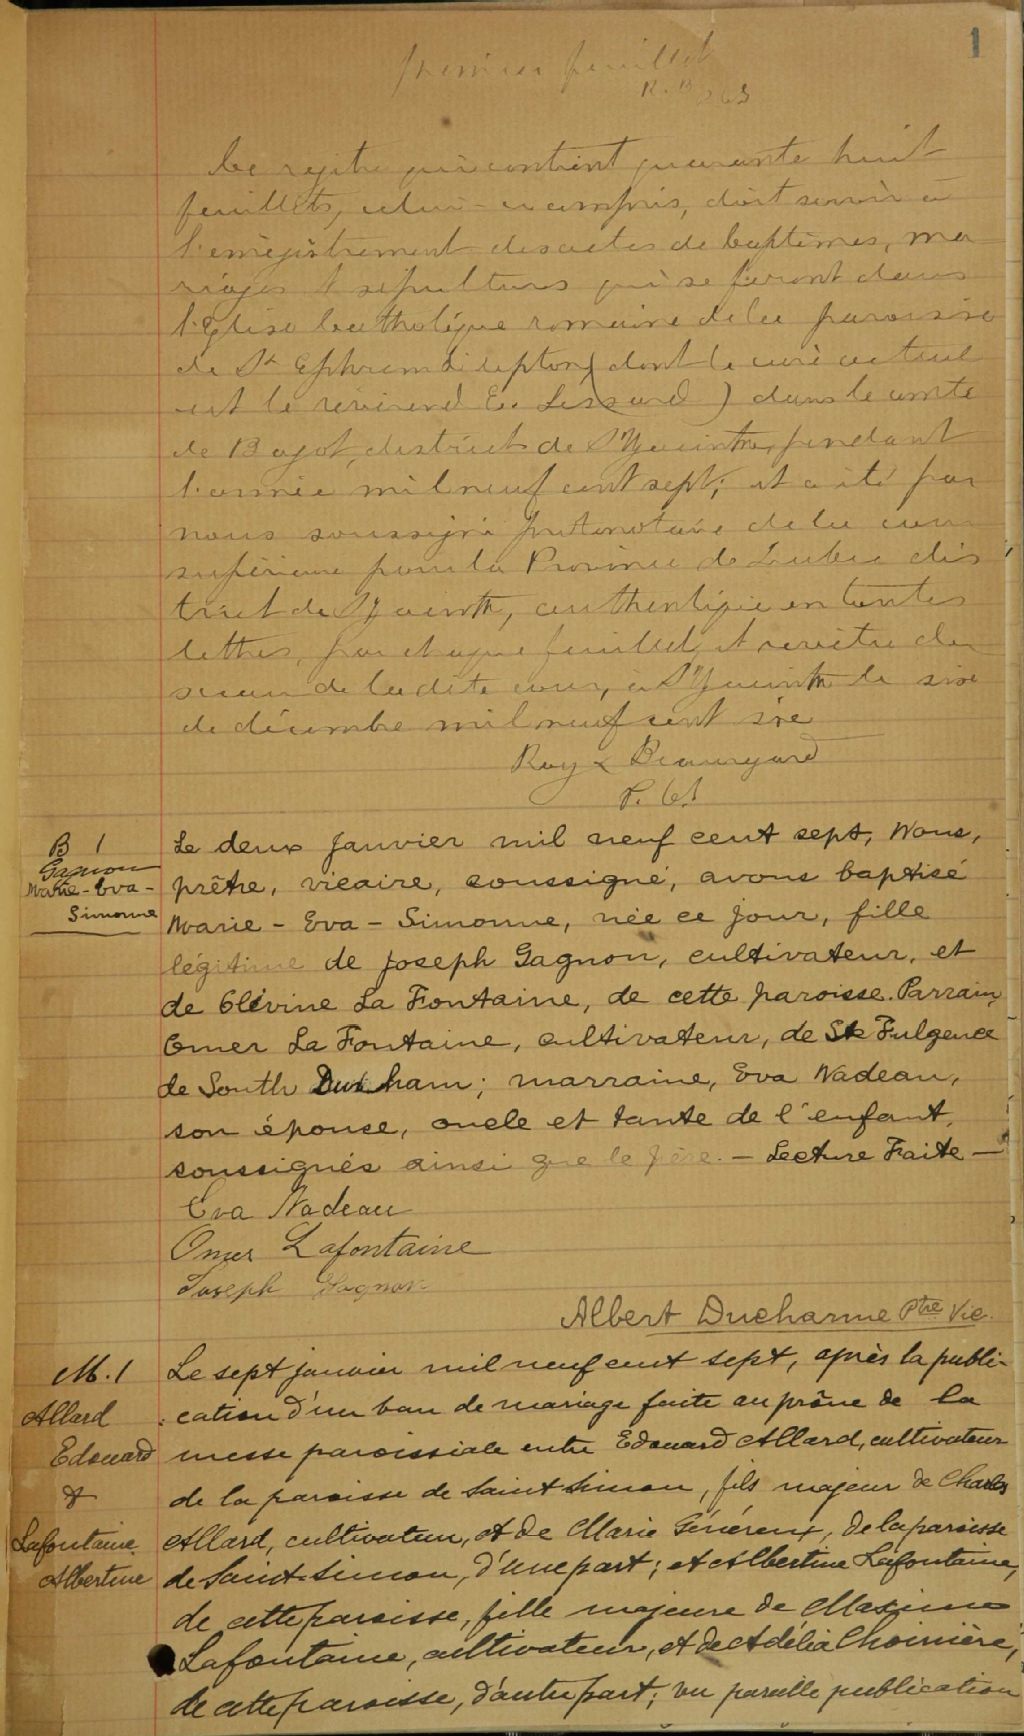 1
premier feuillet
R. B
Ce regitre qui contient quarante huit
feuillets, celui-ci compris, doit servir à
l'enregistrement des actes de baptêmes, ma
riages & sépultures qui se feront dans
l'Eglise Catholique romaine de la paroisse
de St Ephrem d'Upton (dont le curé actuel
est le révérend E. Lessard) dans le comté
de Bagot, district de St Hyacinthe, pendant
l'année mil neuf cent sept; et a été par
nous soussigné protonotaire de la cour
supérieure pour la Province de Quebec dis
trict de St Hyacinthe, authentiqué en toutes
lettres, par chaque feuillet, et revêtu du
sceau de la dite cour, à St Hyacinthe le six
de décembre mil neuf cent six
Roy & Beauregard
P. C. S.
B 1
Gagnon
Marie-Eva-
Simonne
Le deux janvier mil neuf cent sept, Nous,
prêtre, vicaire, soussigné, avons baptisé
Marie-Eva-Simonne, née ce jour, fille
légitime de Joseph Gagnon, cultivateur, et
de Clévine La Fontaine, de cette paroisse. Parrain,
Omer La Fontaine, cultivateur, de St Fulgence
de South Durham; marraine, Eva Nadeau,
son épouse, oncle et tante de l'enfant,
soussignés ainsi que le père. - Lecture Faite -
Eva Nadeau
Omer Lafontaine
Joseph Gagnon
Albert Ducharme Ptre Vic.
M. 1
Allard
Edouard
&
Lafontaine
Albertine
Le sept janvier mil neuf cent sept, après la publi-
cation d'un ban de mariage faite au prône de la
messe paroissiale entre Edouard Allard, cultivateur
de la paroisse de Saint Simon, fils majeur de Charles
Allard, cultivateur, et de Marie Généreux, de la paroisse
de Saint-Simon, d'une part; et Albertine Lafontaine,
de cette paroisse, fille majeure de Maxime
Lafontaine, cultivateur, et de Adélia Choinière,
de cette paroisse, d'autre part; vu pareille publication